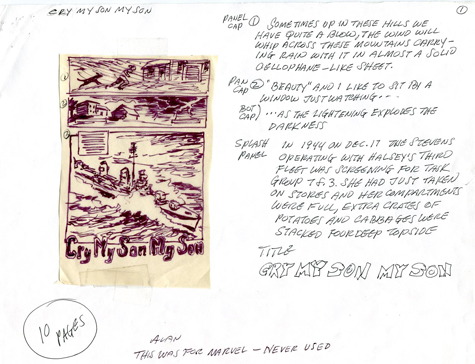 CRY MY SON MY SON
①
PANEL CAP ① SOMETIMES UP IN THESE HILLS WE
HAVE QUITE A BLOW, THE WIND WILL
WHIP ACROSS THESE MOUNTAINS CARRY-
ING RAIN WITH IT IN ALMOST A SOLID
CELLOPHANE-LIKE SHEET.
PAN CAP ② "BEAUTY" AND I LIKE TO SIT BY A
WINDOW JUST WATCHING . . .
BOT CAP) ... AS THE LIGHTENING EXPLODES THE
DARKNESS
SPLASH PANEL IN 1944 ON DEC. 17 THE STEVENS
OPERATING WITH HALSEY'S THIRD
FLEET WAS SCREENING FOR TASK
GROUP 78.3. SHE HAD JUST TAKEN
ON STORES AND HER COMPARTMENTS
WERE FULL, EXTRA CRATES OF
POTATOES AND CABBAGES WERE
STACKED FOUR DEEP TOPSIDE
TITLE
CRY MY SON MY SON
Cry My Son My Son
10 PAGES
ALAN
THIS WAS FOR MARVEL — NEVER USED